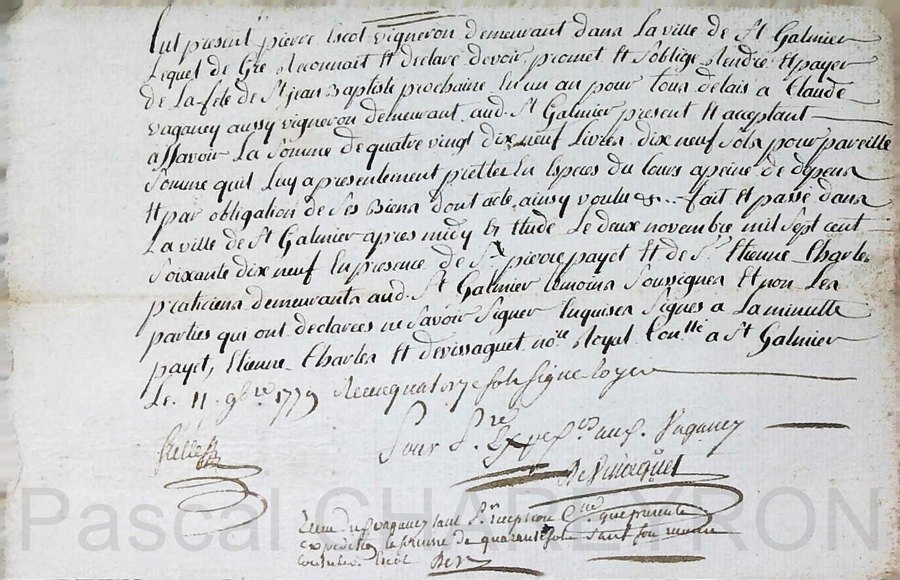 fut present pierre Escot vigneron demeurant dans La ville de St Galmier
Lequel de Gre Reconnait Et declare devoir, promet Et Soblige Rendre Et payer
de La fete de St Jean Baptiste prochaine En un an pour tous delais a Claude
vaganey aussy vigneron demeurant aud. St Galmier present Et acceptant
assavoir La Somme de quatre vingt dix neuf Livres dix neuf Sols pour pareille
Somme quil Luy a presentement prettée En Especes du Cours a peine de depens
Et par obligation de Ses Biens dont acte, ainsy voulu &.. fait Et passé dans
La ville de St Galmier apres midy Et Etude Le deux novembre mil Sept cent
Soixante dix neuf En presence de Sr. pierre payet Et de Sr. Etienne Charles
praticiens demeurants aud. St Galmier temoins Soussignes Et non Les
parties qui ont declarées ne Savoir Signer Enquises Signes a La minutte
payet, Etienne Charles Et devissaguet nore. Royal a St Galmier
Le 11 9bre 1779 Recu quatorze sols signe
Pour Vaganey
vaganey
expedition la somme de quarante
Escot
Pascal CHAREYRON